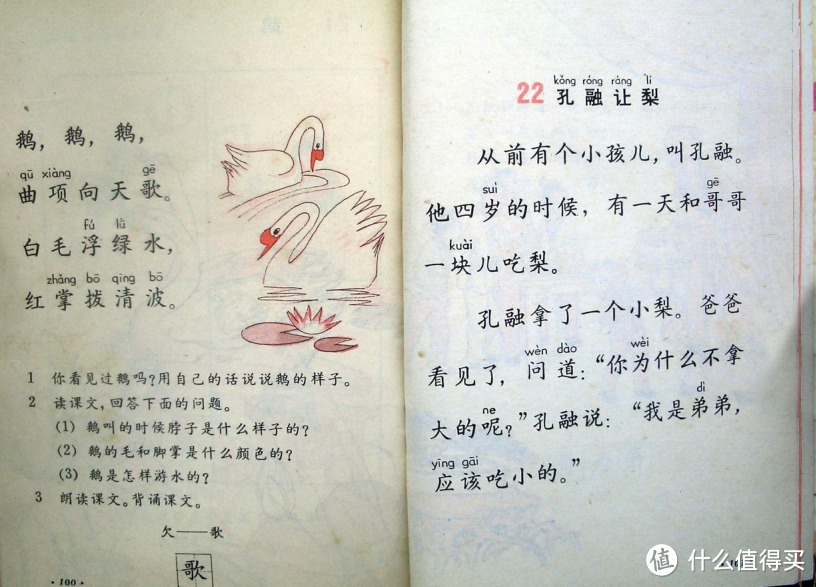 鹅，鹅，鹅，
qū xiàng gē
曲项向天歌。
fú lǜ
白毛浮绿水，
zhǎng bō qīng bō
红掌拨清波。
1 你看见过鹅吗？用自己的话说说鹅的样子。
2 读课文，回答下面的问题。
(1) 鹅叫的时候脖子是什么样子的？
(2) 鹅的毛和脚掌是什么颜色的？
(3) 鹅是怎样游水的？
3 朗读课文。背诵课文。
欠——歌
歌
·100·
kǒng róng ràng lí
22 孔融让梨
从前有个小孩儿，叫孔融。
suì gē
他四岁的时候，有一天和哥哥
kuài
一块儿吃梨。
孔融拿了一个小梨。爸爸
wèn dào wèi
看见了，问道：“你为什么不拿
ne dì
大的呢？”孔融说：“我是弟弟，
yīng gāi
应该吃小的。”
值 什么值得买